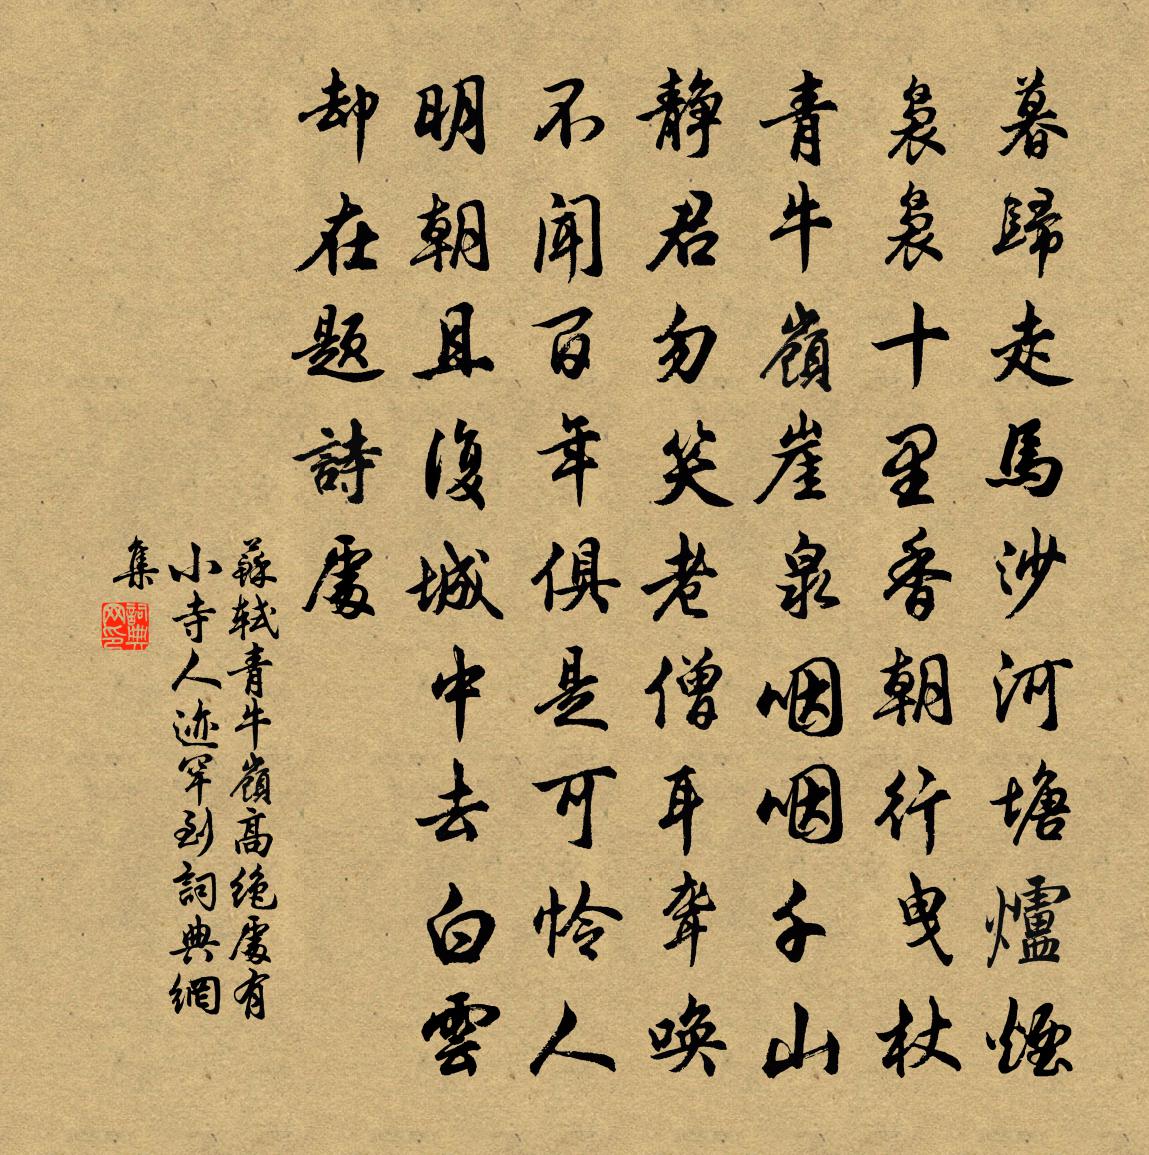 暮歸走馬沙河塘爐煙
裊裊十里香朝行曳杖
青牛嶺崖泉咽咽千山
靜君勿笑老僧耳聾喚
不闻百年俱是可怜人
明朝且復城中去白雲
却在题詩處
蘇軾青牛嶺高绝處有
小寺人迹罕到詞典網
集
詞典网印